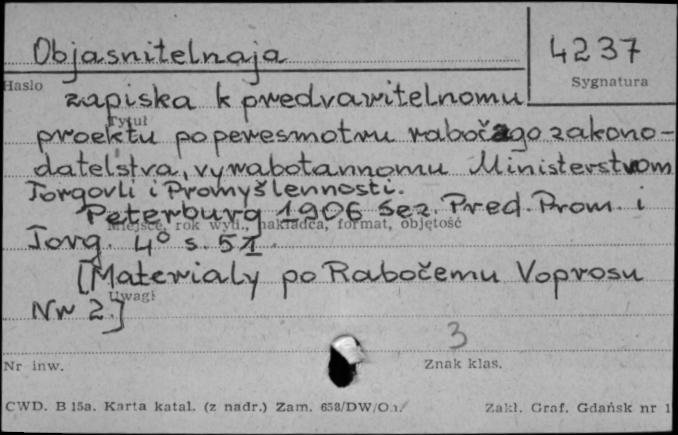 Objasnitelnaja
4237
Hasło
Sygnatura
zapiska k predvaritelnomu
Tytuł
proektu po peresmotru rabočago zakono-
datelstva, vyrabotannomu Ministerstvom
Torgovli i Promyšlennosti.
Peterburg 1906 Sez. Pred. Prom. i
Miejsce, rok wyd., nakładca, format, objętość
Torg. 4° s. 51.
[Materialy po Rabočemu Voprosu
Uwagi
Nr 2.]
3
Nr inw.
Znak klas.
CWD. B 15a. Karta katal. (z nadr.) Zam. 658/DW/O.
Zakł. Graf. Gdańsk nr 1